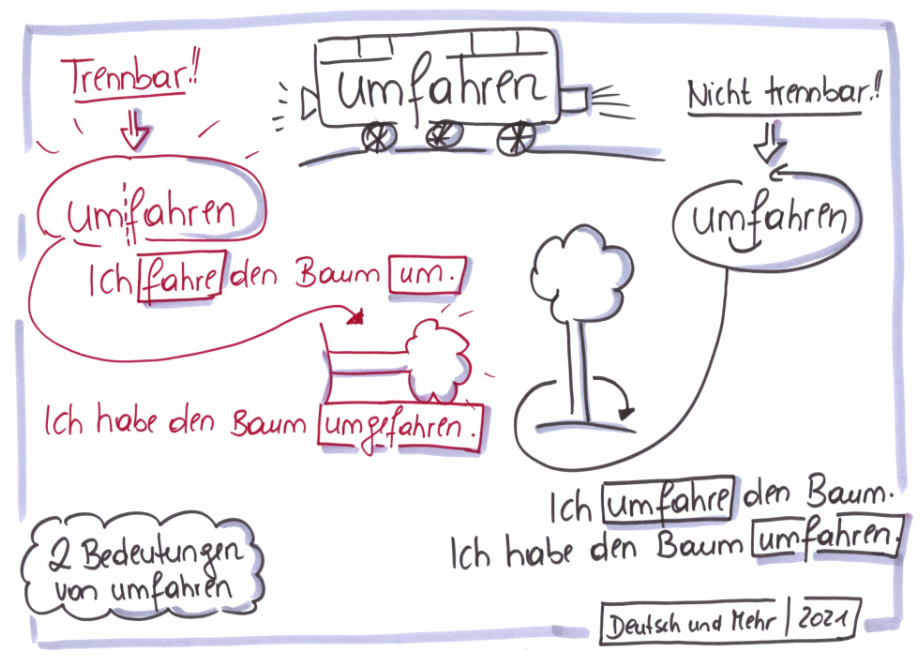 umfahren
Trennbar!!
umfahren
Ich fahre den Baum um.
Ich habe den Baum umgefahren.
Nicht trennbar!!
umfahren
Ich umfahre den Baum.
Ich habe den Baum umfahren.
2 Bedeutungen
von umfahren
Deutsch und Mehr | 2021